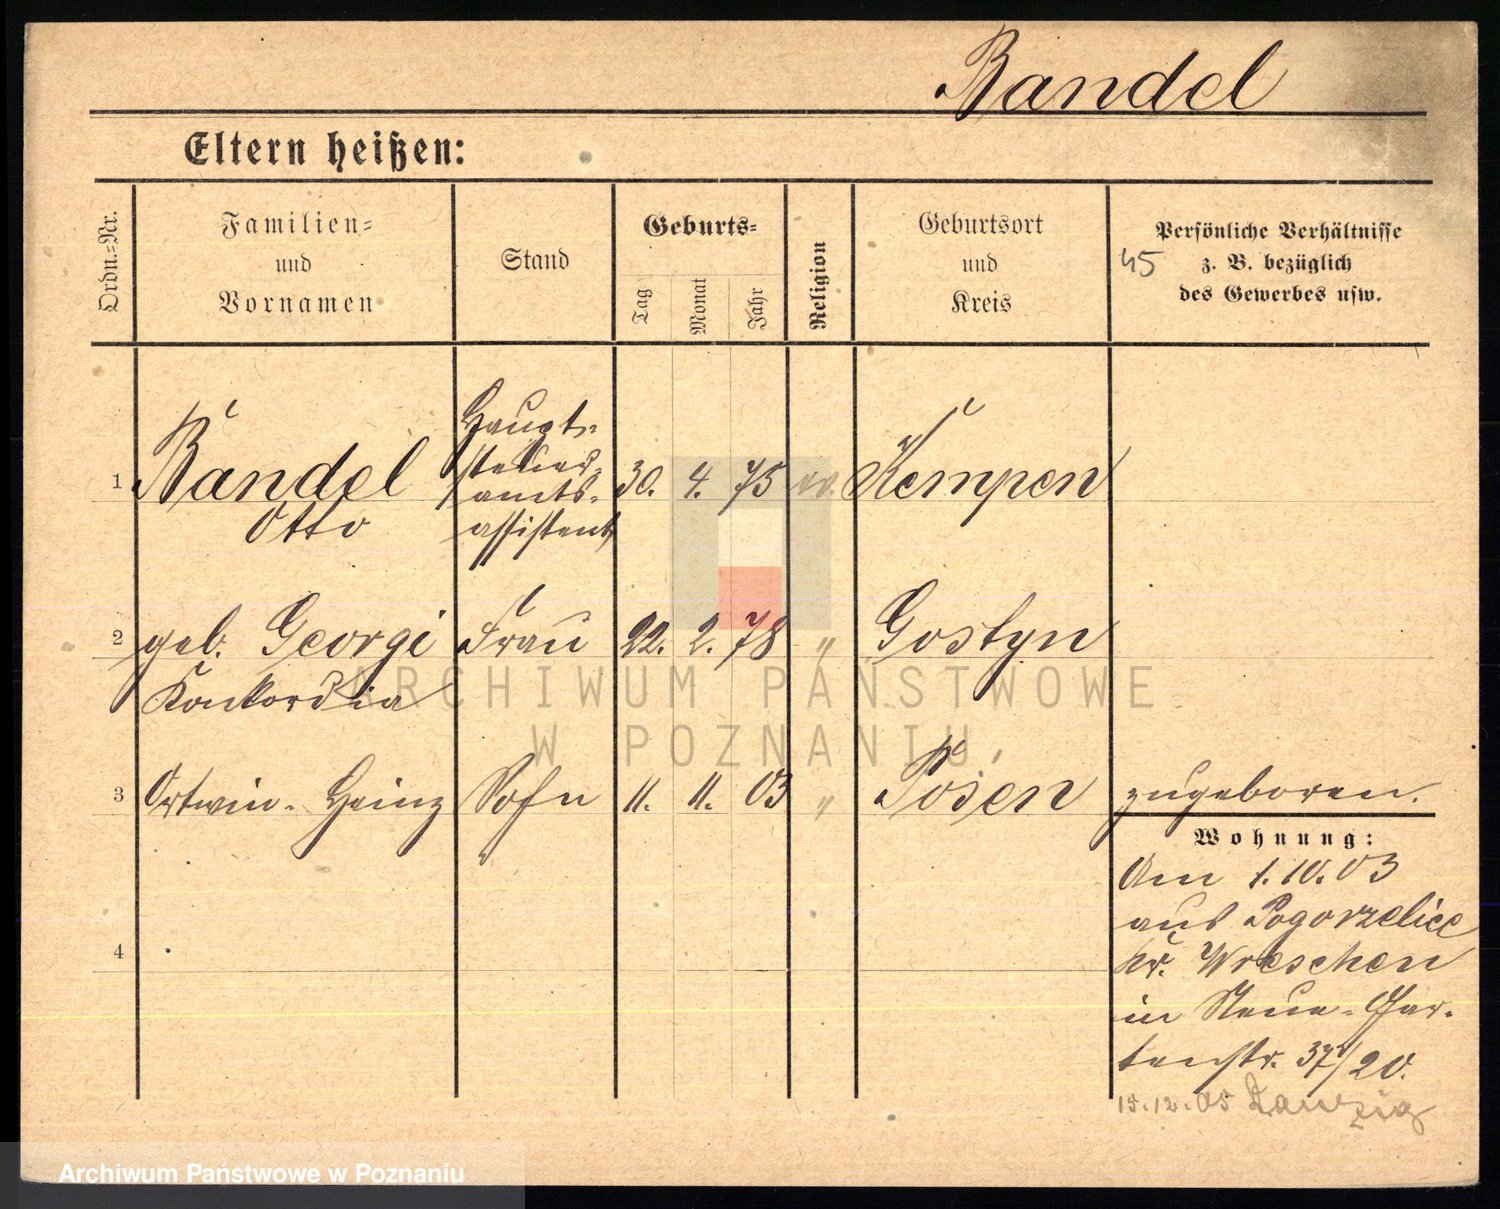 Bandel
Eltern heißen:
Ordn.=Nr.
Familien=
und
Vornamen
Stand
Geburts=
Tag
Monat
Jahr
Religion
Geburtsort
und
Kreis
Persönliche Verhältnisse
z. B. bezüglich
des Gewerbes usw.
45
1
Bandel
Otto
Haupt-
steuer-
amts-
assistent
30. 4. 75 ev. Kempen
2
geb. Georgi
Konkordia
Frau 22. 2. 78 " Gostyn
3
Ortwin-Heinz Sohn 11. 11. 03 " Posen zugeboren.
Wohnung:
Am 1.10.03
aus Pogorzelice
Kr. Wreschen
in Neue-Gar-
tenstr. 37/20.
4
15.12.05 Danzig
ARCHIWUM PAŃSTWOWE
W POZNANIU
Archiwum Państwowe w Poznaniu